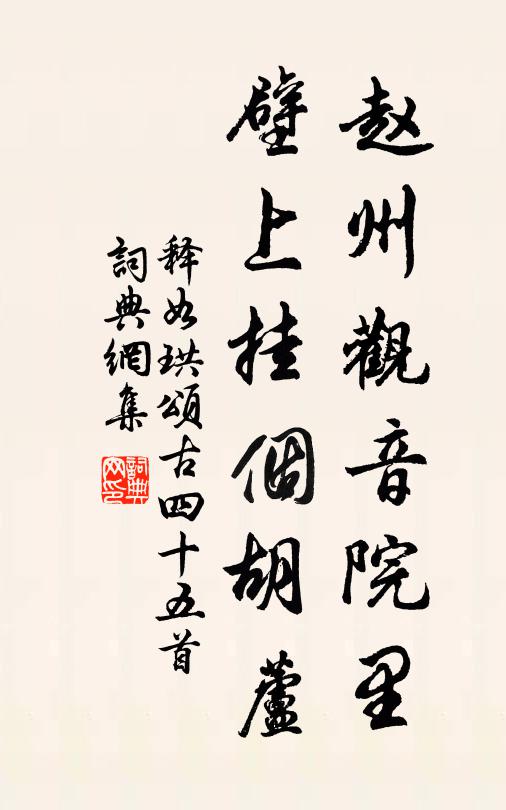 赵州觀音院里
壁上挂個胡蘆
释如珙頌古四十五首
詞典網集
詞典网印